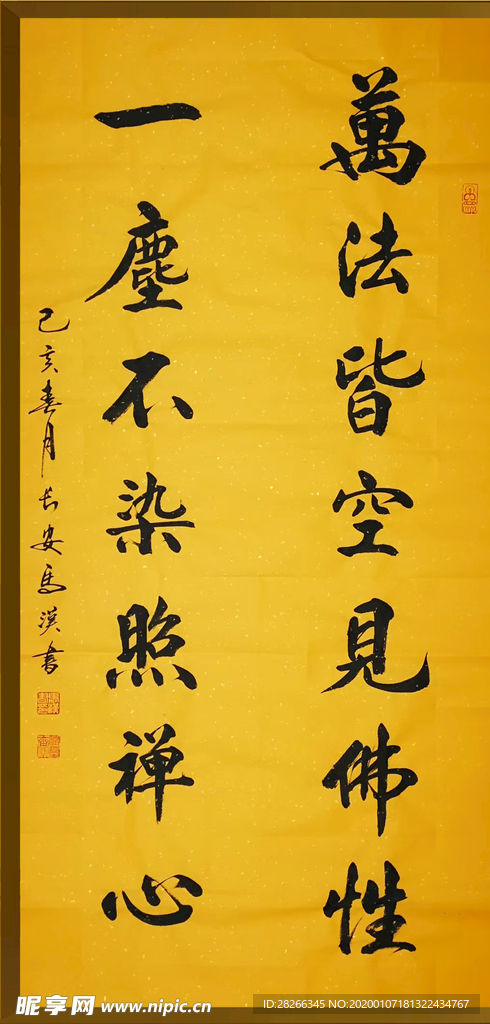 萬法皆空見佛性
一塵不染照禅心
己亥春月长安馬漢書
昵享网 www.nipic.cn
ID:28266345 NO:20200107181322434767